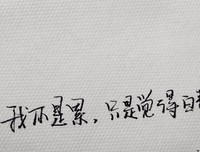 我不是累，只是觉得自